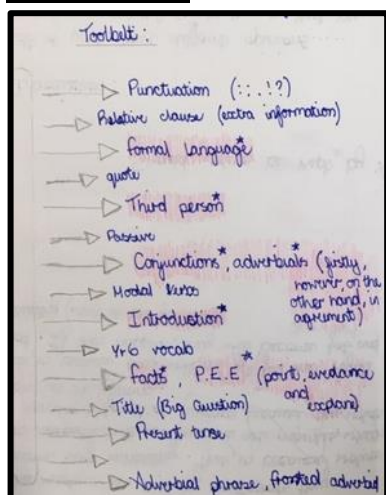 Toolbelt:
Punctuation (: ; . ! ?)
Relative clause (extra information)
formal language*
quote
Third person*
Passive
Conjunctions*, adverbials* (firstly,
however, on the
other hand, in
agreement)
Modal verbs
Introduction*
Yr6 vocab
facts*, P.E.E* (point, evidence
and
explain)
Title (Big Question)
Present tense
Adverbial phrase, fronted adverbial